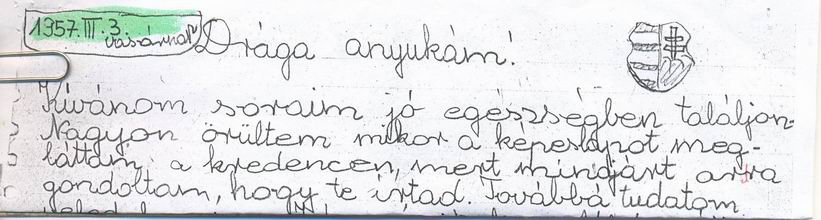 1957.III.3.
vasárnap
Drága anyukám!
Kívánom soraim jó egészségben találjon.
Nagyon örültem mikor a képeslapot meg-
láttam a kredencen, mert mindjárt arra
gondoltam, hogy te írtad. Továbbá tudatom